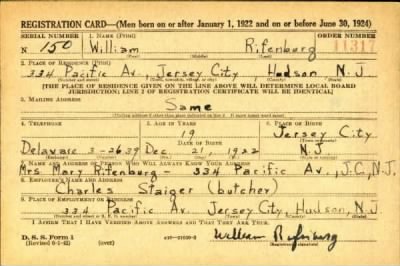 REGISTRATION CARD—(Men born on or after January 1, 1922 and on or before June 30, 1924)
SERIAL NUMBER 1. NAME (Print) ORDER NUMBER
N 150 William Rifenburg 11311
(First) (Middle) (Last)
2. PLACE OF RESIDENCE (Print)
334 Pacific Av. Jersey City Hudson N.J.
(Number and street) (Town, township, village, or city) (County) (State)
[THE PLACE OF RESIDENCE GIVEN ON THE LINE ABOVE WILL DETERMINE LOCAL BOARD
JURISDICTION; LINE 2 OF REGISTRATION CERTIFICATE WILL BE IDENTICAL]
3. MAILING ADDRESS
Same
[Mailing address if other than place indicated on line 2. If same insert word same]
4. TELEPHONE 5. AGE IN YEARS 6. PLACE OF BIRTH
19 Jersey City
DATE OF BIRTH
Delaware 3-2639 Dec. 21, 1922 N.J.
7. NAME AND ADDRESS OF PERSON WHO WILL ALWAYS KNOW YOUR ADDRESS
Mrs. Mary Rifenburg - 334 Pacific Av., J.C., N.J.
8. EMPLOYER'S NAME AND ADDRESS
Charles Staiger (butcher)
9. PLACE OF EMPLOYMENT OR BUSINESS
Pacific Av. Jersey City, Hudson, N.J
(Number and street or R. F. D. number) (Town) (County) (State)
I AFFIRM THAT I HAVE VERIFIED ABOVE ANSWERS AND THAT THEY ARE TRUE.
D. S. S. Form 1
(Revised 6-9-42) (over)
William Rifenburg
(Registrant's signature)